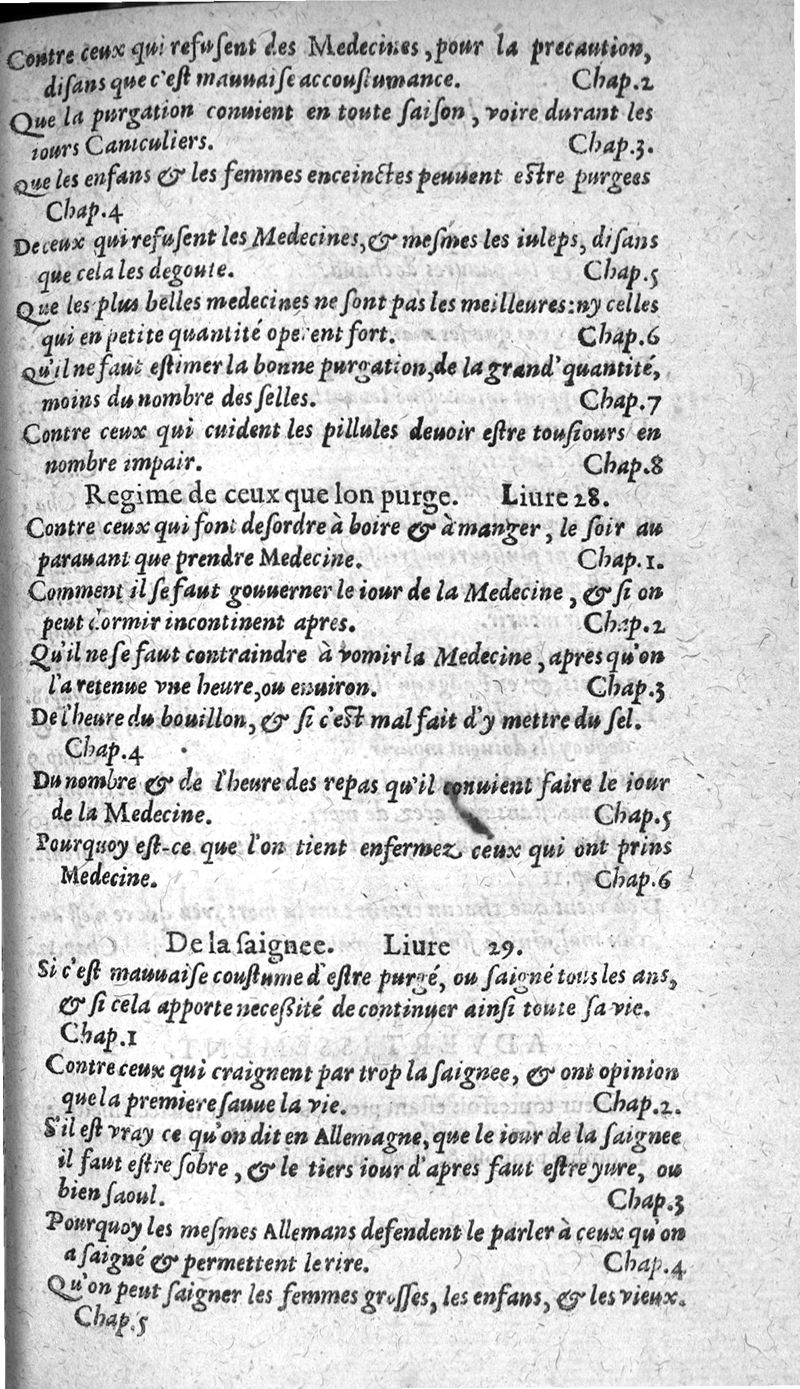 Contre ceux qui refuſent des Medecines, pour la precaution,
diſans que c'eſt mauuaiſe accouſtumance. Chap.2
Que la purgation conuient en toute ſaiſon, voire durant les
iours Caniculiers. Chap.3.
Que les enfans & les femmes enceinctes peuuent eſtre purgees
Chap.4
De ceux qui refuſent les Medecines, & meſmes les iuleps, diſans
que cela les degoute. Chap.5
Que les plus belles medecines ne ſont pas les meilleures: ny celles
qui en petite quantité operent fort. Chap.6
Qu'il ne faut eſtimer la bonne purgation, de la grand' quantité,
moins du nombre des ſelles. Chap.7
Contre ceux qui cuident les pillules deuoir eſtre touſiours en
nombre impair. Chap.8
Regime de ceux que lon purge. Liure 28.
Contre ceux qui font deſordre à boire & à manger, le ſoir au
parauant que prendre Medecine. Chap.1.
Comment il ſe faut gouuerner le iour de la Medecine, & ſi on
peut dormir incontinent apres. Chap.2
Qu'il ne ſe faut contraindre à vomir la Medecine, apres qu'on
l'a retenue vne heure, ou enuiron. Chap.3
De l'heure du bouillon, & ſi c'eſt mal fait d'y mettre du ſel.
Chap.4
Du nombre & de l'heure des repas qu'il conuient faire le iour
de la Medecine. Chap.5
Pourquoy eſt-ce que l'on tient enfermez ceux qui ont prins
Medecine. Chap.6
De la ſaignee. Liure 29.
Si c'eſt mauuaiſe couſtume d'eſtre purgé, ou ſaigné tous les ans,
& ſi cela apporte neceſſité de continuer ainſi toute ſa vie.
Chap.1
Contre ceux qui craignent par trop la ſaignee, & ont opinion
que la premiere ſauue la vie. Chap.2.
S'il eſt vray ce qu'on dit en Allemagne, que le iour de la ſaignee
il faut eſtre ſobre, & le tiers iour d'apres faut eſtre yure, ou
bien ſaoul. Chap.3
Pourquoy les meſmes Allemans defendent le parler à ceux qu'on
a ſaigné & permettent le rire. Chap.4
Qu'on peut ſaigner les femmes groſſes, les enfans, & les vieux.
Chap.5